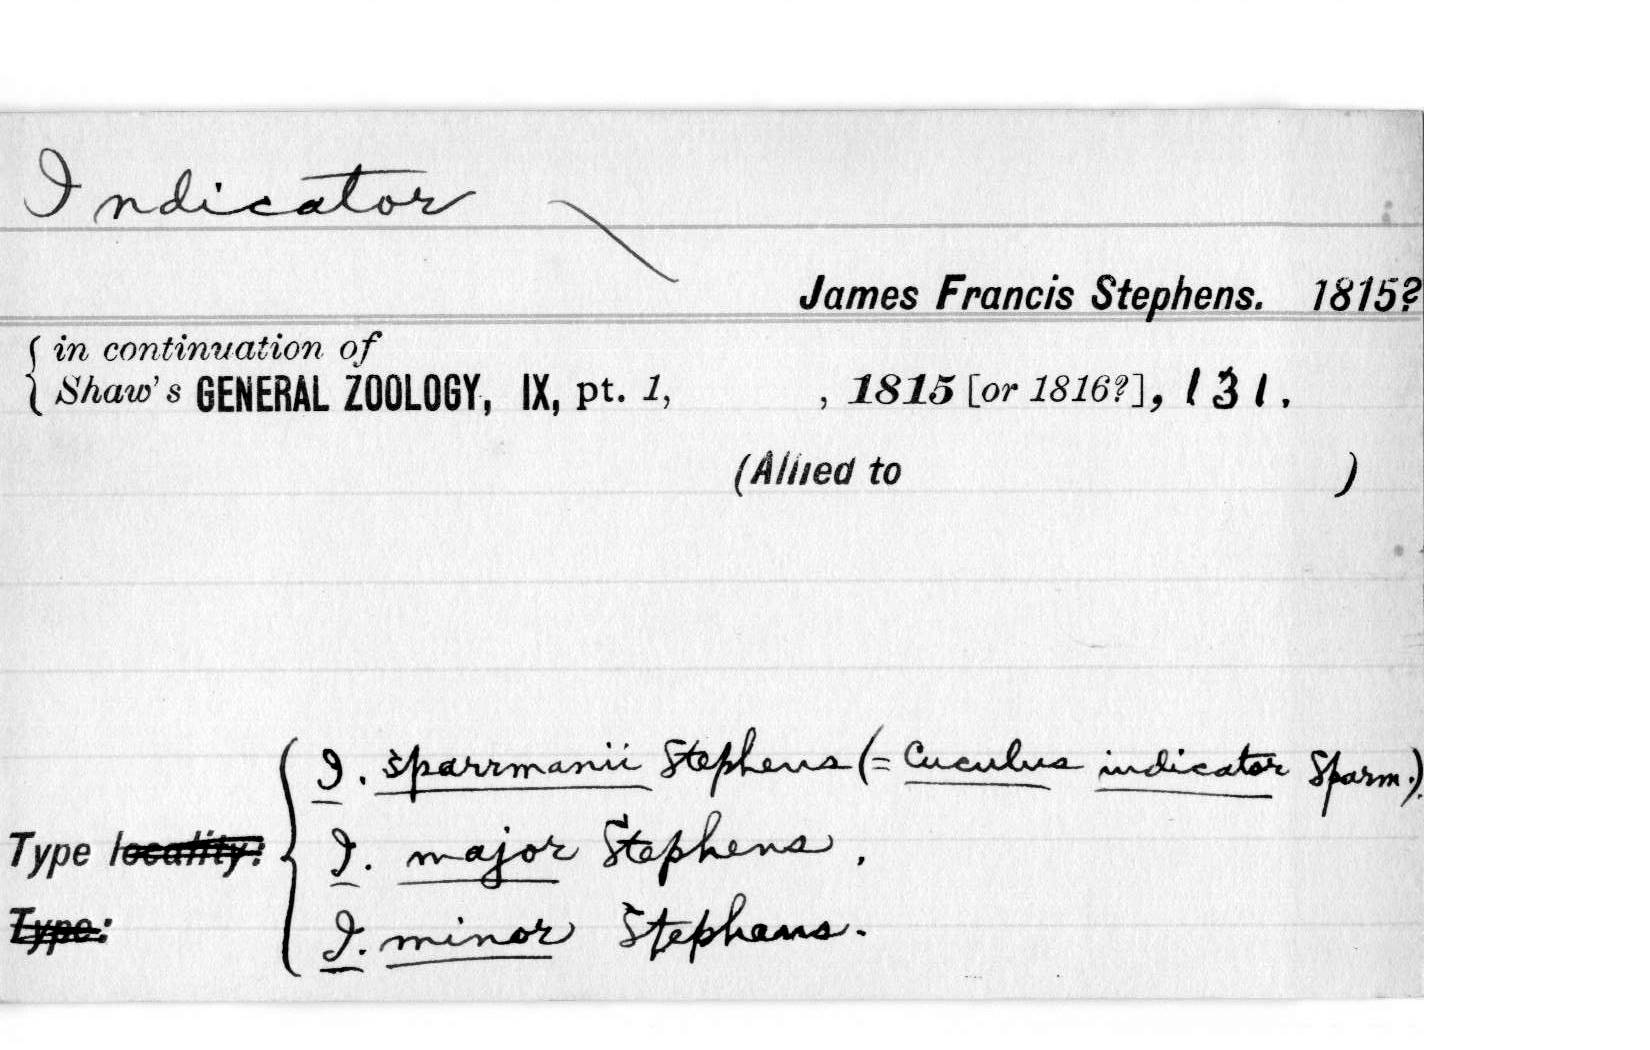 Indicator
James Francis Stephens. 1815?
in continuation of
Shaw's GENERAL ZOOLOGY, IX, pt. 1, , 1815 [or 1816?], 131.
(Allied to )
I. sparrmanii Stephens (= Cuculus indicator Sparm.).
Type locality: I. major Stephens.
Type: I. minor Stephens.